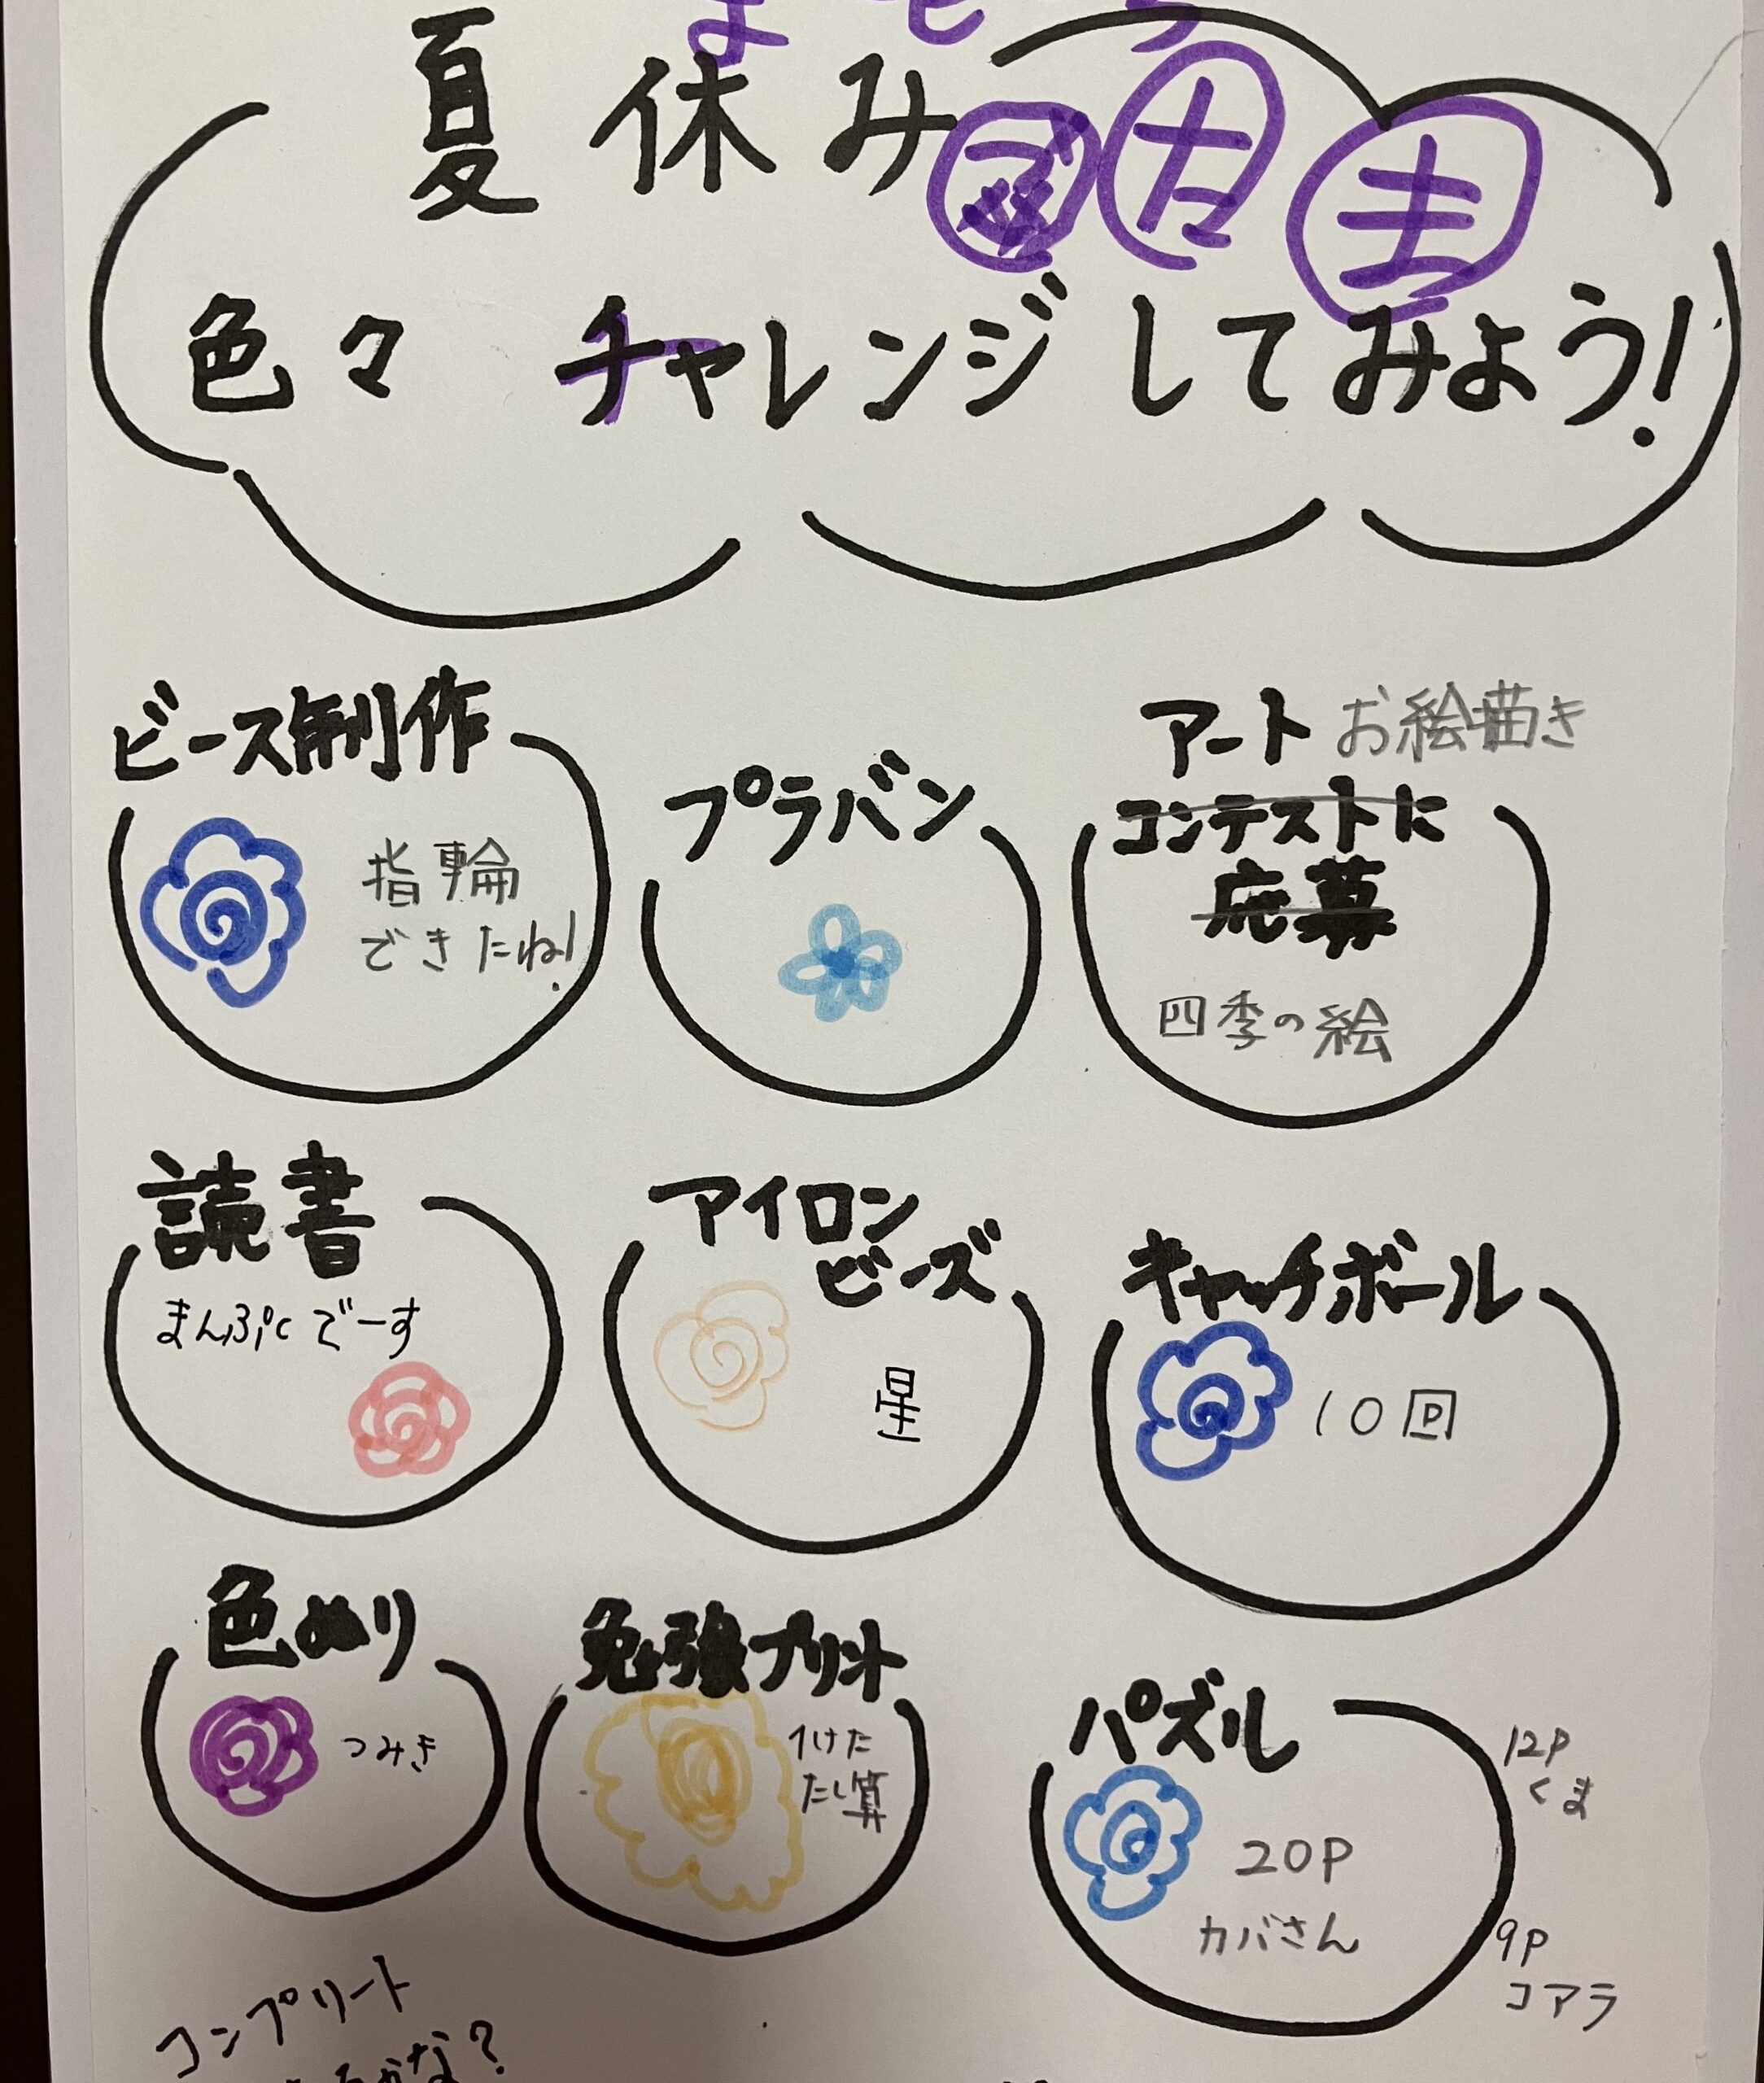 夏休み
色々 チャレンジしてみよう!
ビース制作
指輪
できたね!
プラバン
アート お絵描き
コンテストに
応募
四季の絵
読書
まんぷくでーす
アイロン
ビーズ
星
キャッチボール
10回
色ぬり
つみき
勉強プリント
1けた
たし算
パズル
20P
カバさん
12P
くま
9P
コアラ
コンプリート
かな?